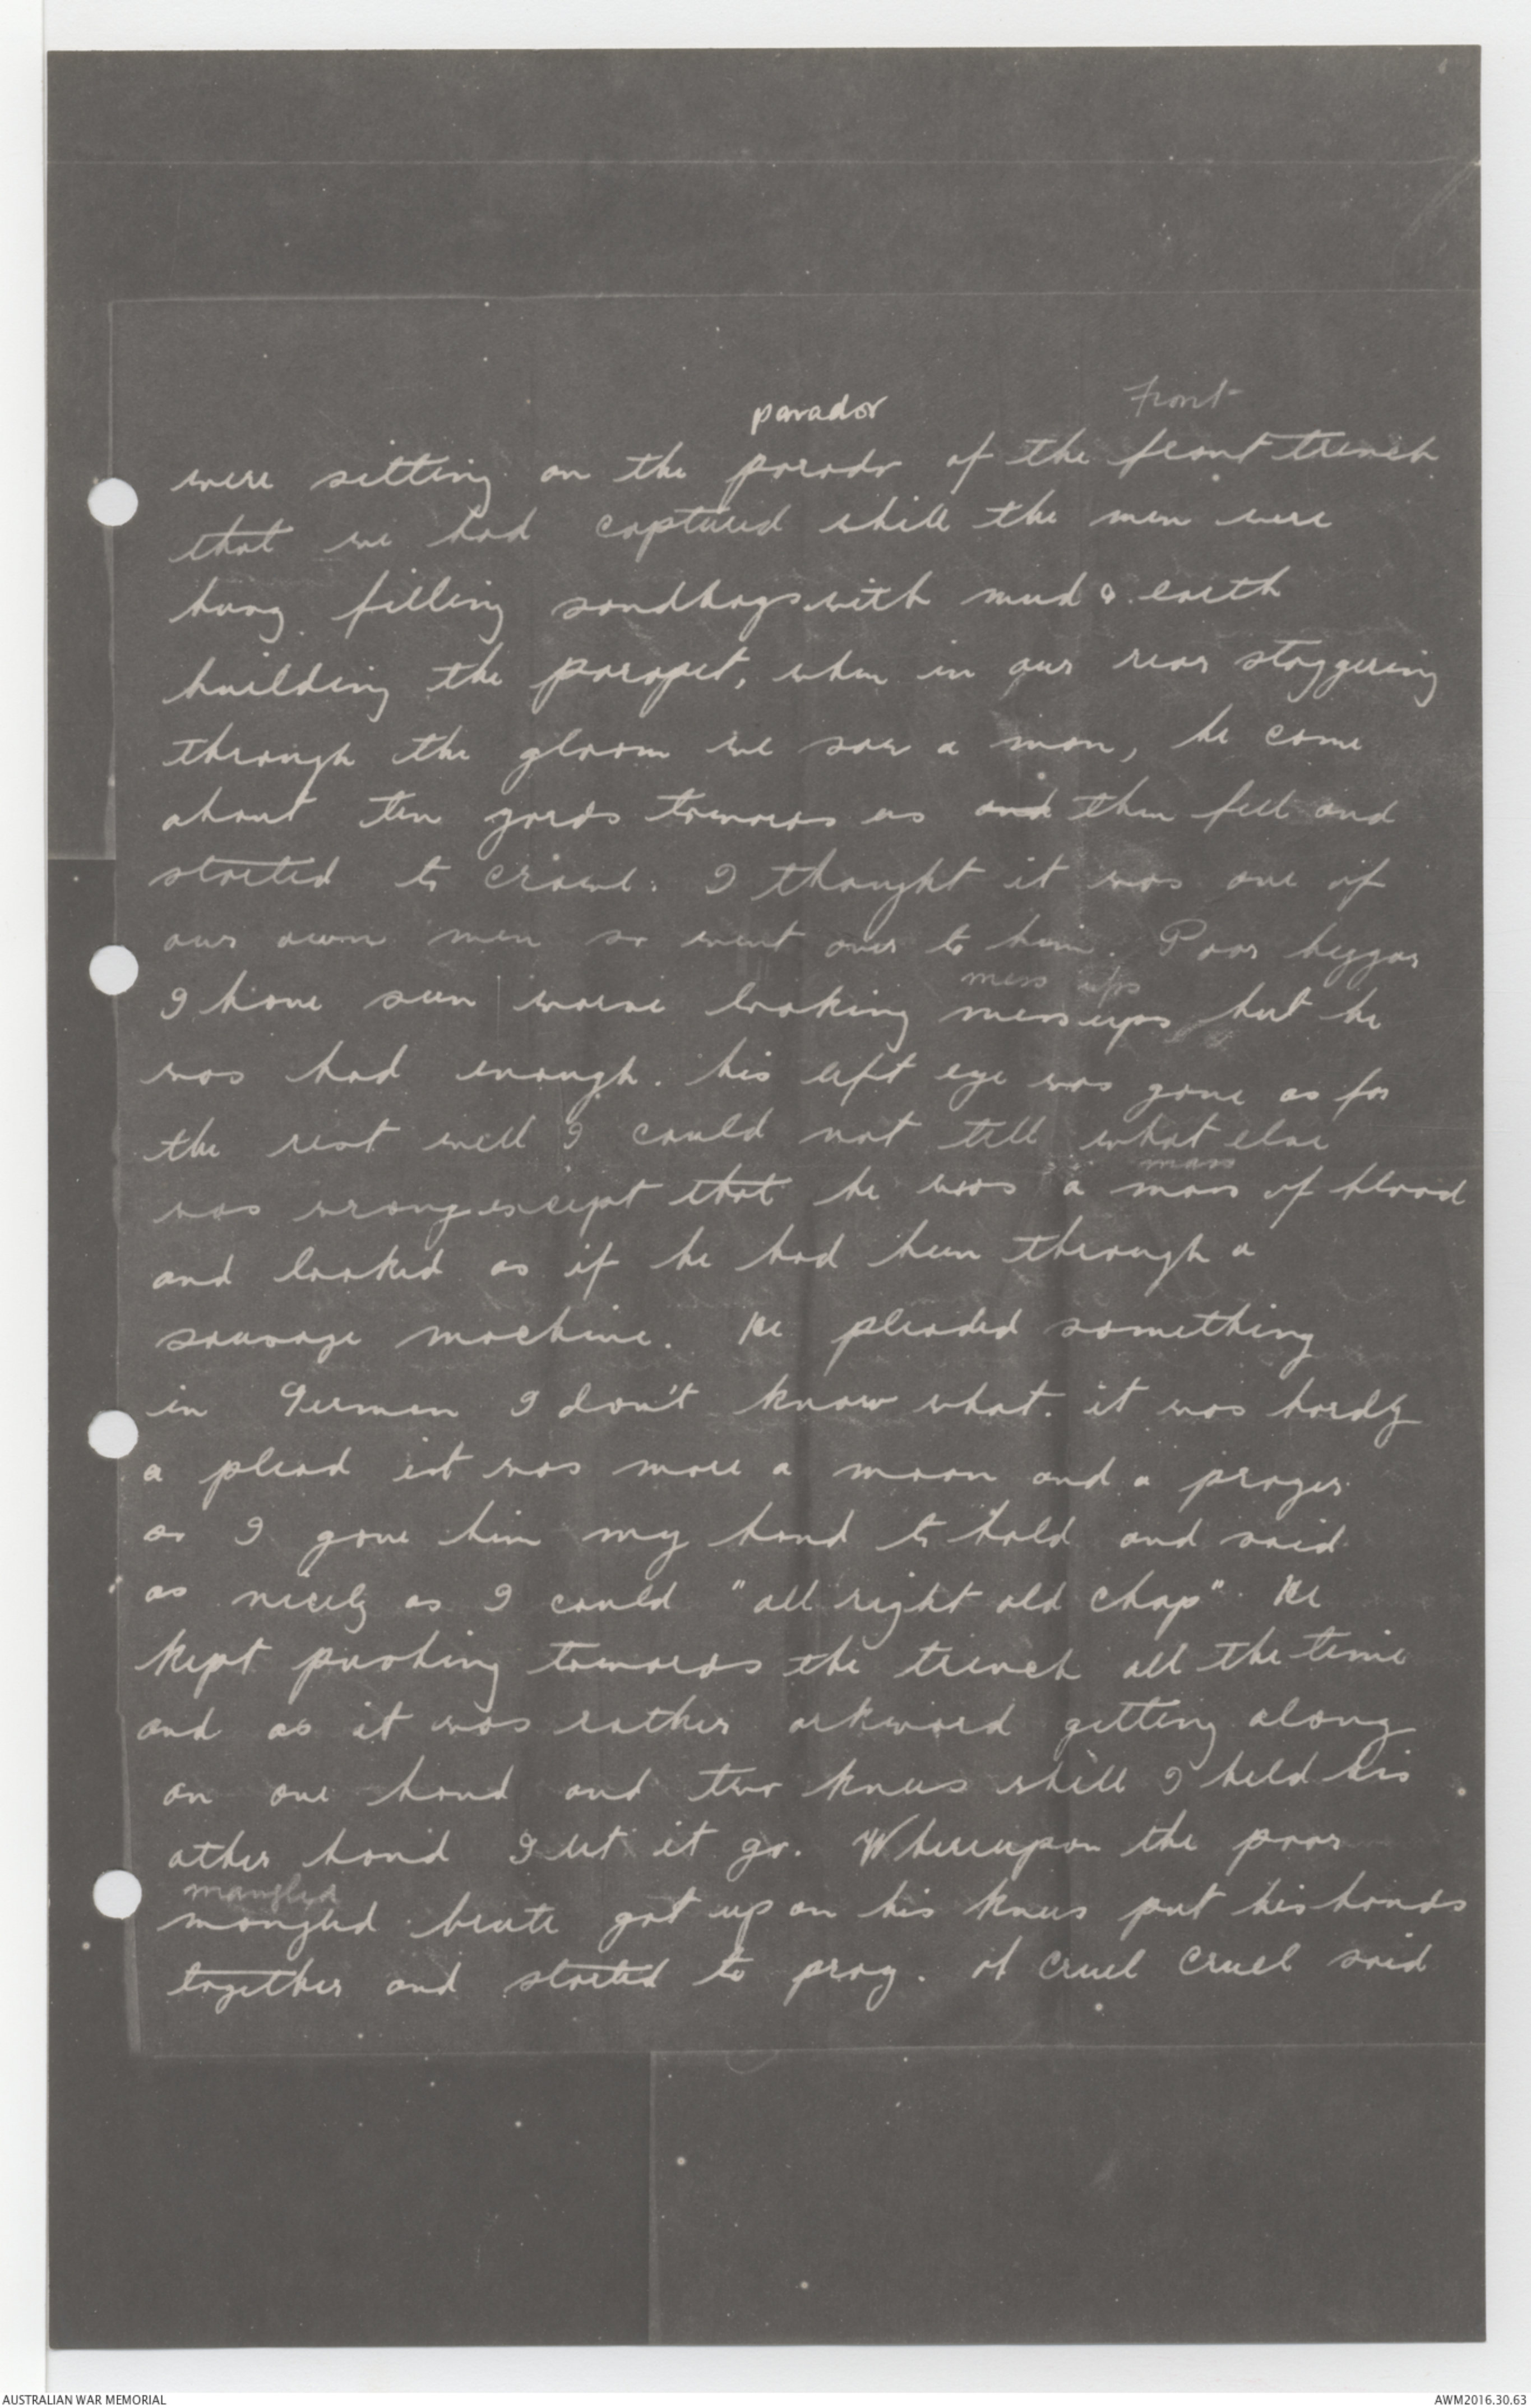 parador Front
were sitting on the parador of the front trench
that we had captured while the men were
busy filling sandbags with mud & earth
building the parapet, when in our rear staggering
through the gloom we saw a man, he come
about ten yards towards us and then fell and
started to crawl. I thought it was one of
our own men so went over to him. Poor beggar
mess ups
I have seen worse looking mess ups but he
was bad enough. his left eye was gone as for
the rest well I could not tell what else
mass
was wrong except that he was a mass of blood
and looked as if he had been through a
sausage machine. He pleaded something
in German I don't know what. it was hardly
a plead it was more a moan and a prayer.
as I gave him my hand to hold and said
as nicely as I could "all right old chap". He
kept pushing towards the trench all the time
and as it was rather arkward getting along
on one hand and two knees while I held his
other hand I let it go. Whereupon the poor
mangled
mangled brute got up on his knees put his hands
together and started to pray. oh cruel cruel said
AUSTRALIAN WAR MEMORIAL AWM2016.30.63